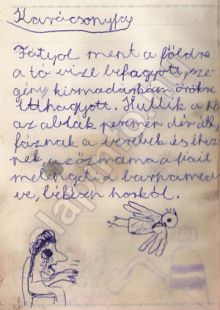 Karácsonyfa
Fátyol ment a földre
a tó vize befagyott, sze
gény kismadárkám örökre
itthagyott. Hullik a hó
az ablak peremén dér áll
fáznak a verebek és éhez
nek, az őzmama a fiait
melengeti, a barna med
ve, békésen horkol.